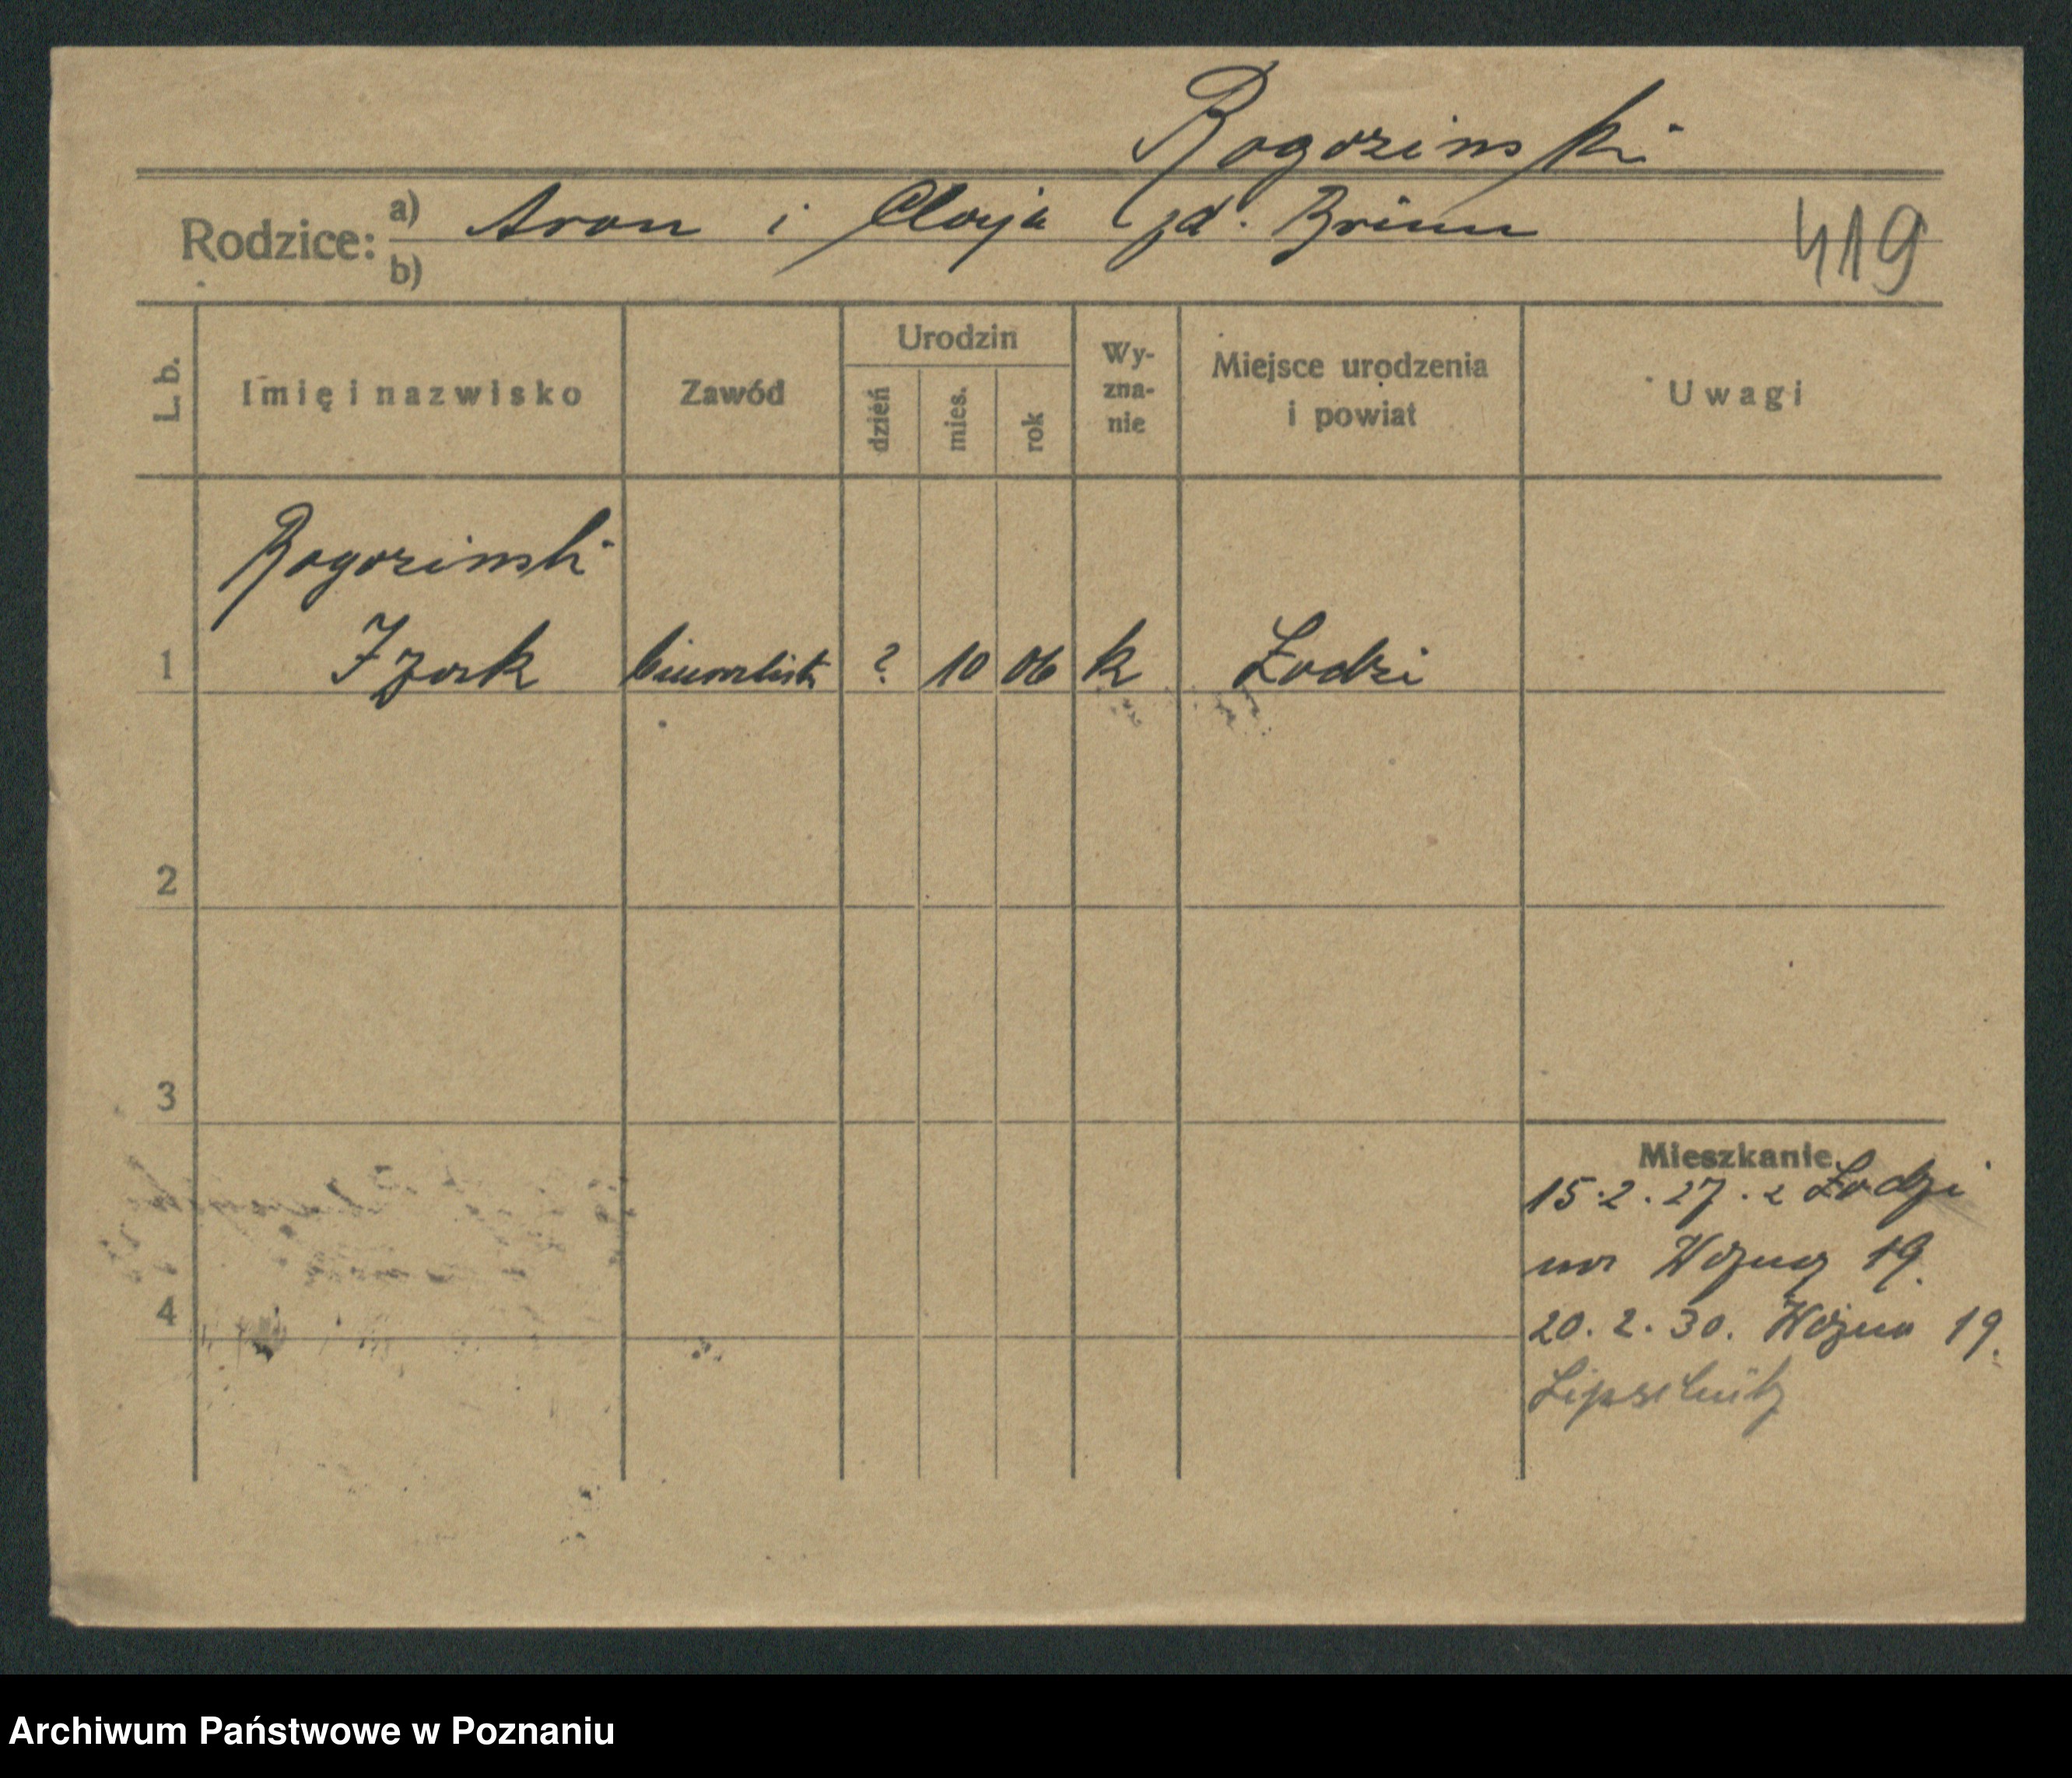 Rogozinski
Rodzice: a) Aron i Chaja zd. Brium
b)
419
L. b. Imię i nazwisko Zawód Urodzin dzień mies. rok Wy-zna-nie Miejsce urodzenia i powiat Uwagi
Rogozinski
1 Izaak biuralist ? 10 06 k Łodzi
2
3
Mieszkanie
15.2.27. z Łodzi
na Wozną 19.
4
20.2.30. Wozna 19.
Lipschütz
Archiwum Państwowe w Poznaniu